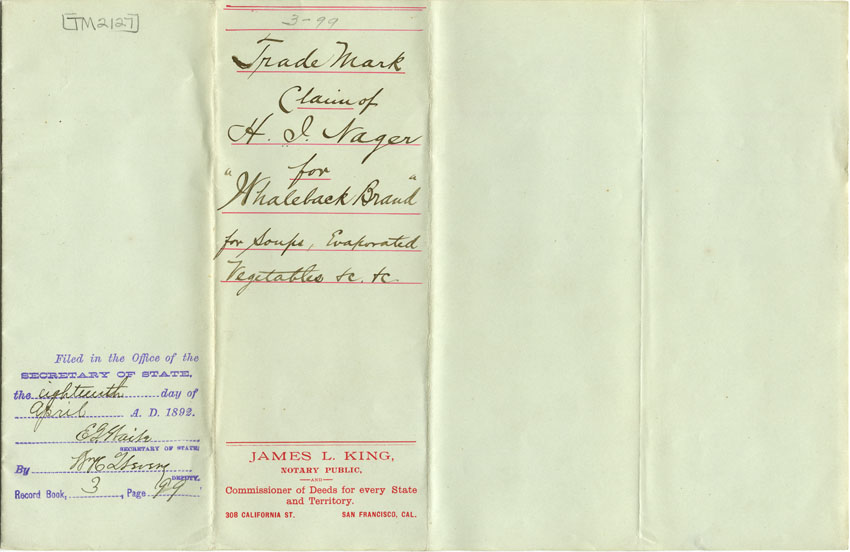 [TM2127]
Filed in the Office of the
SECRETARY OF STATE,
the eighteenth day of
April A. D. 1892.
E. G. Waite
SECRETARY OF STATE
By
DEPUTY.
Record Book, 3, Page 99
3-99
Trade Mark
Claim of
H. I. Nager
for
"Whaleback Brand"
for Soups, Evaporated
Vegetables &c. &c.
JAMES L. KING,
NOTARY PUBLIC,
—AND—
Commissioner of Deeds for every State
and Territory.
308 CALIFORNIA ST. SAN FRANCISCO, CAL.